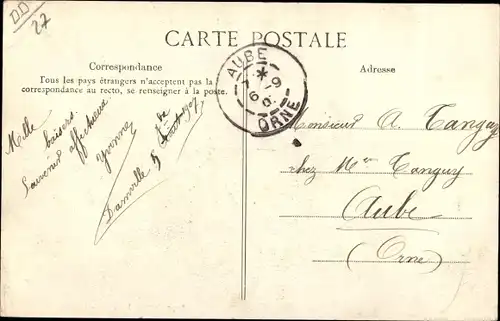 DD
27
CARTE POSTALE
Correspondance
Tous les pays étrangers n'acceptent pas la
correspondance au recto, se renseigner à la poste.
Adresse
AUBE
*
7 - 9
6
ORNE
Mille baisers
Souvenir affectueux
Yvonne
Damville
Monsieur A. Tanguy
chez Mr Tanguy
Aube
(Orne)